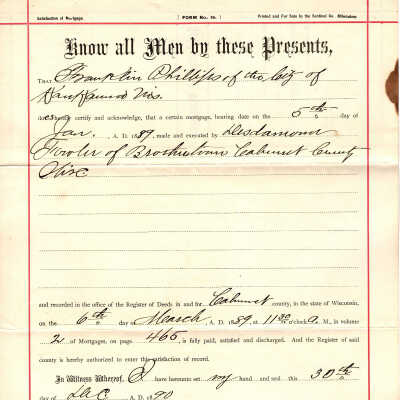 Satisfaction of Mortgage. FORM No. 16. Printed and For Sale by the Sentinel Co. Milwaukee.
Know all Men by these Presents,
THAT Franklin Phillips, of the City of
Wis.
do es certify and acknowledge, that a certain mortgage, bearing date on the 5th day of
Jan. A. D. 1889, made and executed by Desdamond
Fowler of Calumet County
Wisc
and recorded in the office of the Register of Deeds in and for Calumet county, in the state of Wisconsin,
on the 6th day of March, A. D. 1889, at 11 30 o'clock a. M., in volume
2 of Mortgages, on page 465 is fully paid, satisfied and discharged. And the Register of said
county is hereby authorized to enter this satisfaction of record.
In Witness Whereof, I have hereunto set my hand and seal this 30th
day of Dec A. D. 1890